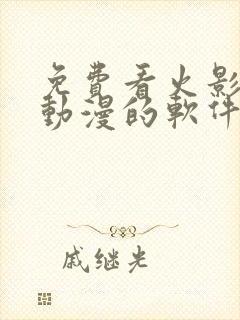 免費看火影
動漫的軟件
戚继光